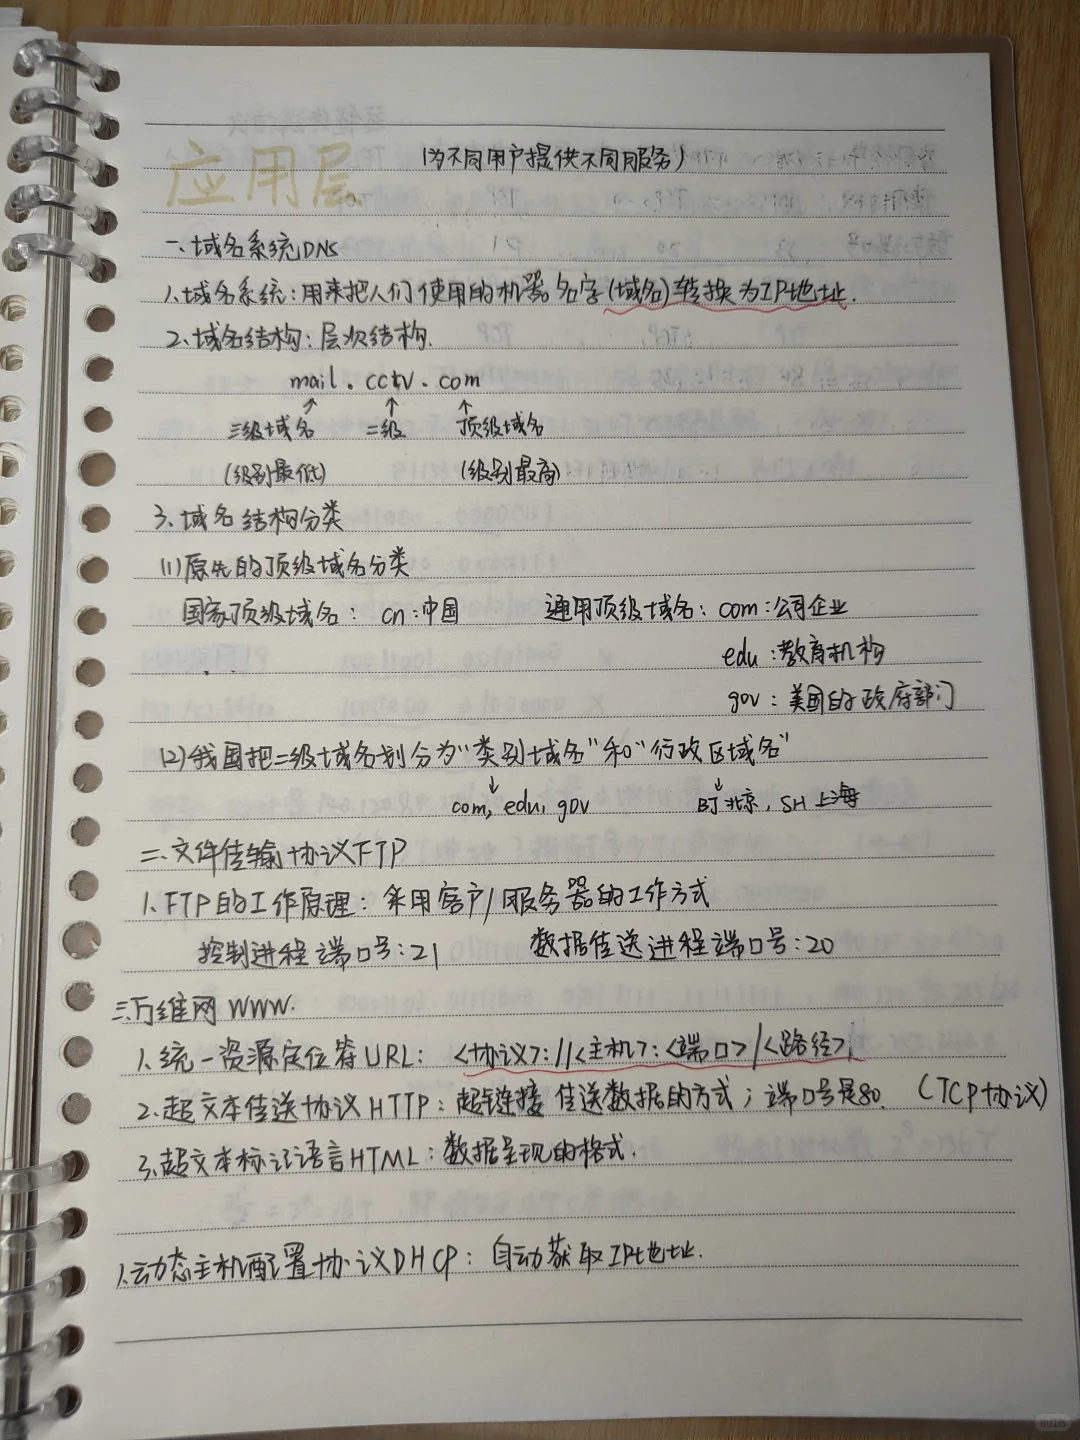 应用层 (为不同用户提供不同服务)
一、域名系统DNS
1、域名系统：用来把人们使用的机器名字(域名)转换为IP地址.
2、域名结构：层次结构.
mail . cctv . com
↑ ↑ ↑
三级域名 二级 顶级域名
(级别最低) (级别最高)
3、域名结构分类
(1)原先的顶级域名分类
国家顶级域名： cn：中国 通用顶级域名：com：公司企业
edu：教育机构
gov：美国的政府部门
(2)我国把二级域名划分为“类别域名”和“行政区域名”
↓ ↓
com, edu, gov BJ北京, SH上海
二、文件传输协议FTP
1、FTP的工作原理：采用客户/服务器的工作方式
控制进程端口号：21 数据传送进程端口号：20
三、万维网WWW.
1、统一资源定位符URL： <协议>：//<主机>：<端口>/<路径>
2、超文本传送协议HTTP：超链接传送数据的方式；端口号是80. (TCP协议)
3、超文本标记语言HTML：数据呈现的格式.
1、动态主机配置协议DHCP：自动获取IP地址.